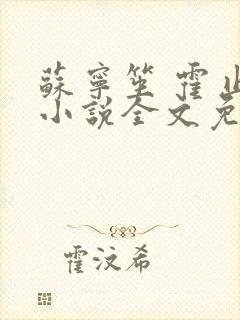 蘇寧笙 霍
小說全文免
霍汶希